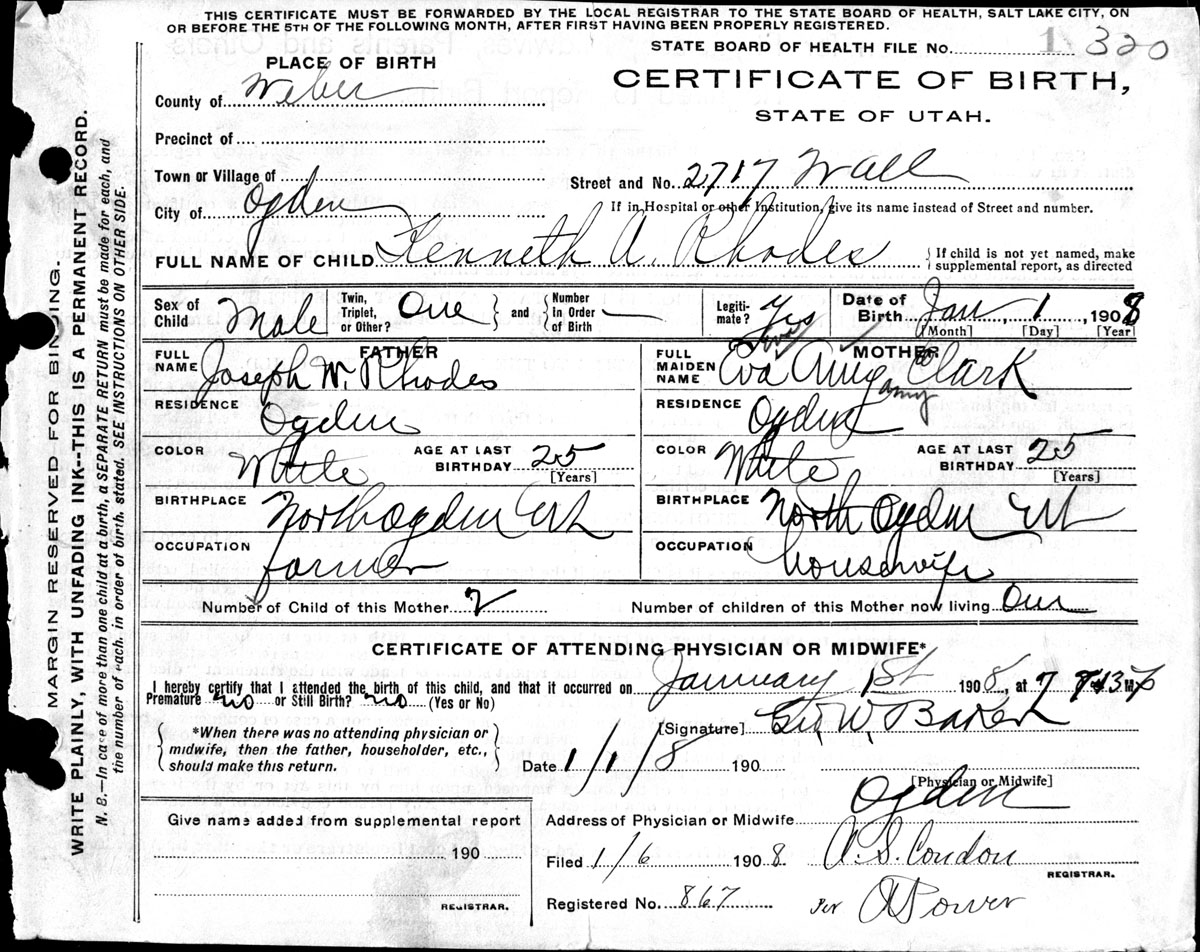 THIS CERTIFICATE MUST BE FORWARDED BY THE LOCAL REGISTRAR TO THE STATE BOARD OF HEALTH, SALT LAKE CITY, ON
OR BEFORE THE 5TH OF THE FOLLOWING MONTH, AFTER FIRST HAVING BEEN PROPERLY REGISTERED.
STATE BOARD OF HEALTH FILE No. 1 320
PLACE OF BIRTH
CERTIFICATE OF BIRTH,
STATE OF UTAH.
County of Weber
Precinct of
Town or Village of
Street and No. 2717 Wall
City of Ogden
If in Hospital or other Institution, give its name instead of Street and number.
FULL NAME OF CHILD Kenneth A. Rhodes
{If child is not yet named, make
supplemental report, as directed
Sex of Child Male
Twin, Triplet, or Other? One
and
Number In Order of Birth —
Legitimate? Yes
Date of Birth Jan 1 1908
[Month] [Day] [Year]
FATHER
FULL NAME Joseph W. Rhodes
RESIDENCE Ogden
COLOR White
AGE AT LAST BIRTHDAY 25
[Years]
BIRTHPLACE North Ogden Ut
OCCUPATION farmer
MOTHER
FULL MAIDEN NAME Eva Amy Clark
amy
RESIDENCE Ogden
COLOR White
AGE AT LAST BIRTHDAY 25
[Years]
BIRTHPLACE North Ogden Ut
OCCUPATION housewife
Number of Child of this Mother 2
Number of children of this Mother now living One
CERTIFICATE OF ATTENDING PHYSICIAN OR MIDWIFE*
I hereby certify that I attended the birth of this child, and that it occurred on January 1st 1908, at 7
Premature no or Still Birth? no (Yes or No)
*When there was no attending physician or
midwife, then the father, householder, etc.,
should make this return.
[Signature] Geo. W. Baker
Date 1/1/8 190
[Physician or Midwife]
Address of Physician or Midwife Ogden
Give name added from supplemental report
190
REGISTRAR.
Filed 1/6 1908 A. S. Condon
REGISTRAR.
Registered No. 867 Per A Power
MARGIN RESERVED FOR BINDING.
WRITE PLAINLY, WITH UNFADING INK--THIS IS A PERMANENT RECORD.
N. B.—In case of more than one child at a birth, a SEPARATE RETURN must be made for each, and
the number of each, in order of birth, stated. SEE INSTRUCTIONS ON OTHER SIDE.